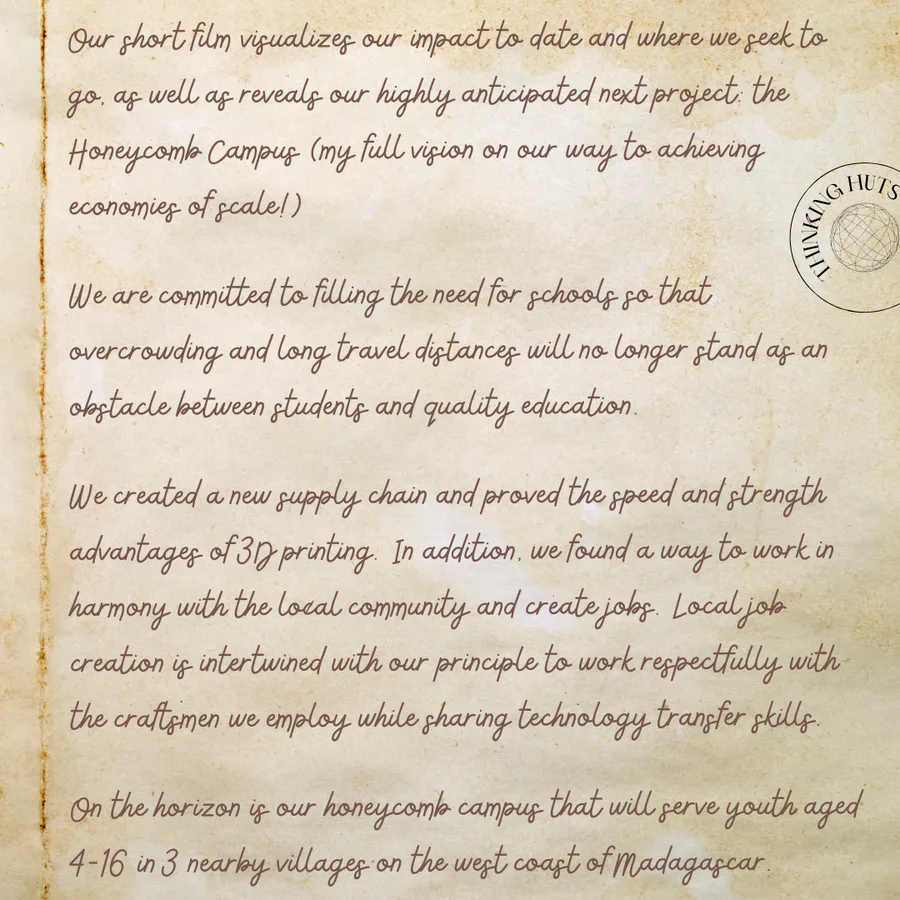 Our short film visualizes our impact to date and where we seek to
go, as well as reveals our highly anticipated next project: the
Honeycomb Campus (my full vision on our way to achieving
economies of scale!)
THINKING HUTS
We are committed to filling the need for schools so that
overcrowding and long travel distances will no longer stand as an
obstacle between students and quality education.
We created a new supply chain and proved the speed and strength
advantages of 3D printing. In addition, we found a way to work in
harmony with the local community and create jobs. Local job
creation is intertwined with our principle to work respectfully with
the craftsmen we employ while sharing technology transfer skills.
On the horizon is our honeycomb campus that will serve youth aged
4-16 in 3 nearby villages on the west coast of Madagascar.